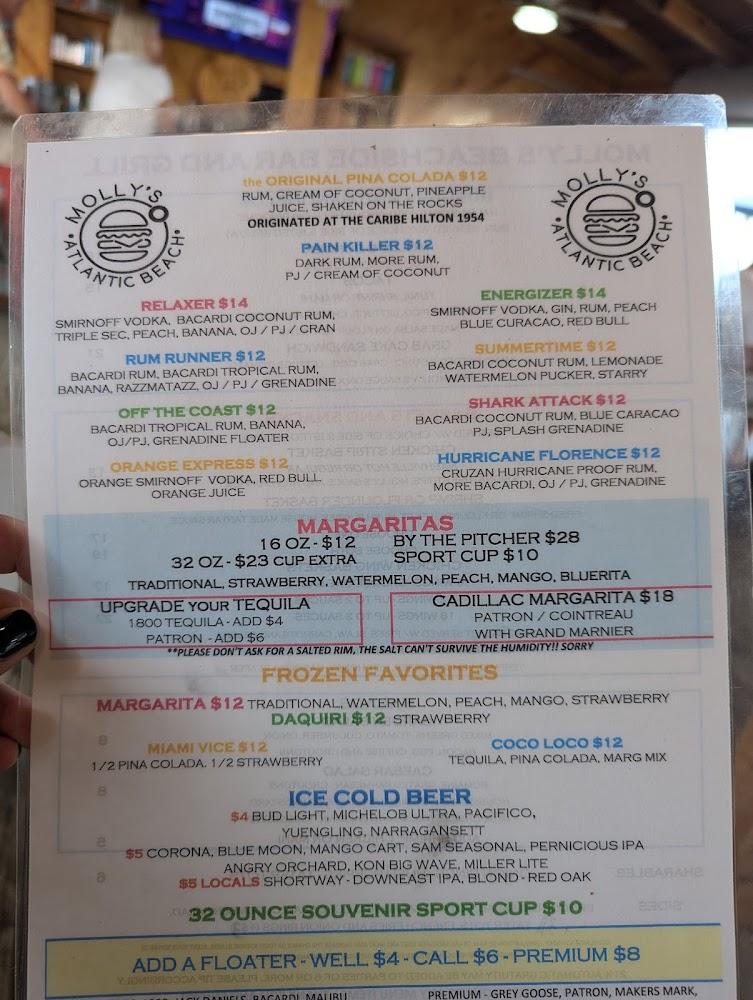 MOLLY'S
ATLANTIC BEACH
MOLLY'S
ATLANTIC BEACH
the ORIGINAL PINA COLADA $12
RUM, CREAM OF COCONUT, PINEAPPLE
JUICE, SHAKEN ON THE ROCKS
ORIGINATED AT THE CARIBE HILTON 1954
PAIN KILLER $12
DARK RUM, MORE RUM,
PJ / CREAM OF COCONUT
RELAXER $14
SMIRNOFF VODKA, BACARDI COCONUT RUM,
TRIPLE SEC, PEACH, BANANA, OJ / PJ / CRAN
ENERGIZER $14
SMIRNOFF VODKA, GIN, RUM, PEACH
BLUE CURACAO, RED BULL
RUM RUNNER $12
BACARDI RUM, BACARDI TROPICAL RUM,
BANANA, RAZZMATAZZ, OJ / PJ / GRENADINE
SUMMERTIME $12
BACARDI COCONUT RUM, LEMONADE
WATERMELON PUCKER, STARRY
OFF THE COAST $12
BACARDI TROPICAL RUM, BANANA,
OJ/PJ, GRENADINE FLOATER
SHARK ATTACK $12
BACARDI COCONUT RUM, BLUE CARACAO
PJ, SPLASH GRENADINE
ORANGE EXPRESS $12
ORANGE SMIRNOFF VODKA, RED BULL
ORANGE JUICE
HURRICANE FLORENCE $12
CRUZAN HURRICANE PROOF RUM,
MORE BACARDI, OJ / PJ, GRENADINE
MARGARITAS
16 OZ - $12 BY THE PITCHER $28
32 OZ - $23 CUP EXTRA SPORT CUP $10
TRADITIONAL, STRAWBERRY, WATERMELON, PEACH, MANGO, BLUERITA
UPGRADE YOUR TEQUILA
1800 TEQUILA - ADD $4
PATRON - ADD $6
CADILLAC MARGARITA $18
PATRON / COINTREAU
WITH GRAND MARNIER
**PLEASE DON'T ASK FOR A SALTED RIM, THE SALT CAN'T SURVIVE THE HUMIDITY!! SORRY
FROZEN FAVORITES
MARGARITA $12 TRADITIONAL, WATERMELON, PEACH, MANGO, STRAWBERRY
DAQUIRI $12 STRAWBERRY
MIAMI VICE $12
1/2 PINA COLADA. 1/2 STRAWBERRY
COCO LOCO $12
TEQUILA, PINA COLADA, MARG MIX
ICE COLD BEER
$4 BUD LIGHT, MICHELOB ULTRA, PACIFICO,
YUENGLING, NARRAGANSETT
$5 CORONA, BLUE MOON, MANGO CART, SAM SEASONAL, PERNICIOUS IPA
ANGRY ORCHARD, KON BIG WAVE, MILLER LITE
$5 LOCALS SHORTWAY - DOWNEAST IPA, BLOND - RED OAK
32 OUNCE SOUVENIR SPORT CUP $10
ADD A FLOATER - WELL $4 - CALL $6 - PREMIUM $8
JACK DANIELS, BACARDI, MALIBU
PREMIUM - GREY GOOSE, PATRON, MAKERS MARK,